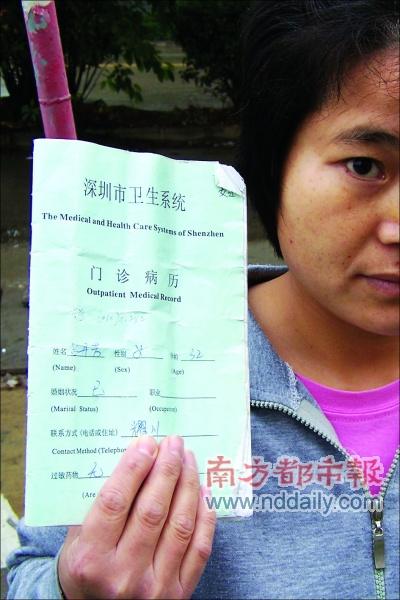 深圳市卫生系统
The Medical and Health Care Systems of Shenzhen
门诊病历
Outpatient Medical Record
姓名 性别 女 年龄 32
(Name) (Sex) (Age)
婚姻状况 已 职业
(Marital Status) (Occupation)
联系方式(电话或住址)
Contact Method (Telephone
过敏药物 无
(Are
南方都市報
www.nddaily.com